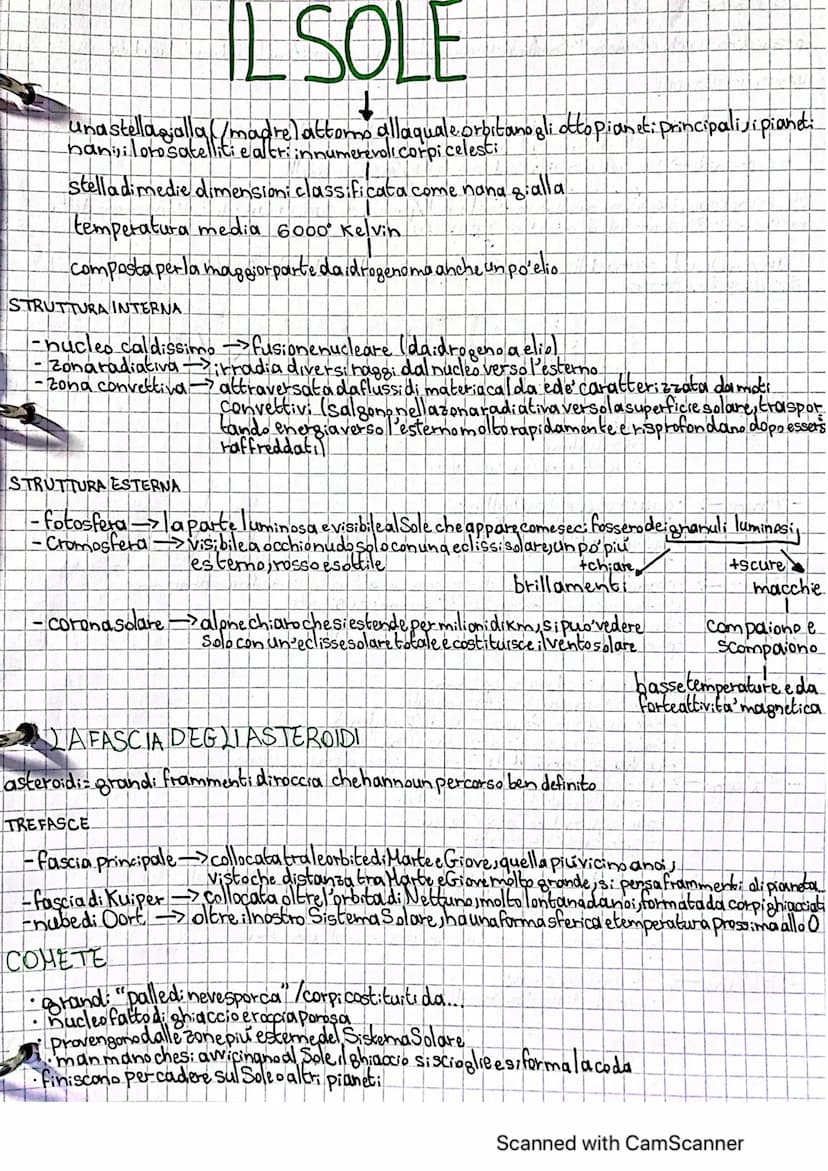 IL SOLE
una stella gialla (/madre) attorno alla quale orbitano gli otto pianeti principali, i pianeti
nani, i loro satelliti e altri innumerevoli corpi celesti
stella di medie dimensioni classificata come nana gialla
temperatura media 6000° Kelvin
composta per la maggior parte da idrogeno ma anche un po' elio
STRUTTURA INTERNA
-nucleo caldissimo → fusione nucleare (da idrogeno a elio)
- zona radiativa → irradia diversi raggi dal nucleo verso l'esterno
- zona convettiva → attraversata da flussi di materia calda ed e' caratterizzata da moti
convettivi (salgono nella zona radiativa verso la superficie solare, traspor
tando energia verso l'esterno molto rapidamente e risprofondano dopo essers
raffreddati)
STRUTTURA ESTERNA
- fotosfera → la parte luminosa e visibile al Sole che appare come se ci fossero dei granuli luminosi
- Cromosfera → visibile a occhio nudo solo con una eclissi solare, un po' più
esterno, rosso e sottile
+chiare
+scure
brillamenti
macchie
- corona solare → alone chiaro che si estende per milioni di km, si puo' vedere
solo con un'eclisse solare totale e costituisce il vento solare
compaiono e
scompaiono
basse temperature e da
forte attivita' magnetica
LA FASCIA DEGLI ASTEROIDI
asteroidi = grandi frammenti di roccia che hanno un percorso ben definito
TRE FASCE
- fascia principale → collocata tra le orbite di Marte e Giove, quella più vicino a noi,
visto che distanza tra Marte e Giove molto grande, si pensa frammenti di pianeta
-fascia di Kuiper → collocata oltre l'orbita di Nettuno, molto lontana da noi, formata da corpi ghiacciati
-nube di Oort → oltre il nostro Sistema Solare, ha una forma sferica e temperatura prossima allo 0
COMETE
· grandi "palle di neve sporca" / corpi costituiti da...
· nucleo fatto di ghiaccio e roccia porosa
· provengono dalle zone più esterne del Sistema Solare
· man mano che si avvicinano al Sole, il ghiaccio si scioglie e si forma la coda
· finiscono per cadere sul Sole o altri pianeti
Scanned with CamScanner